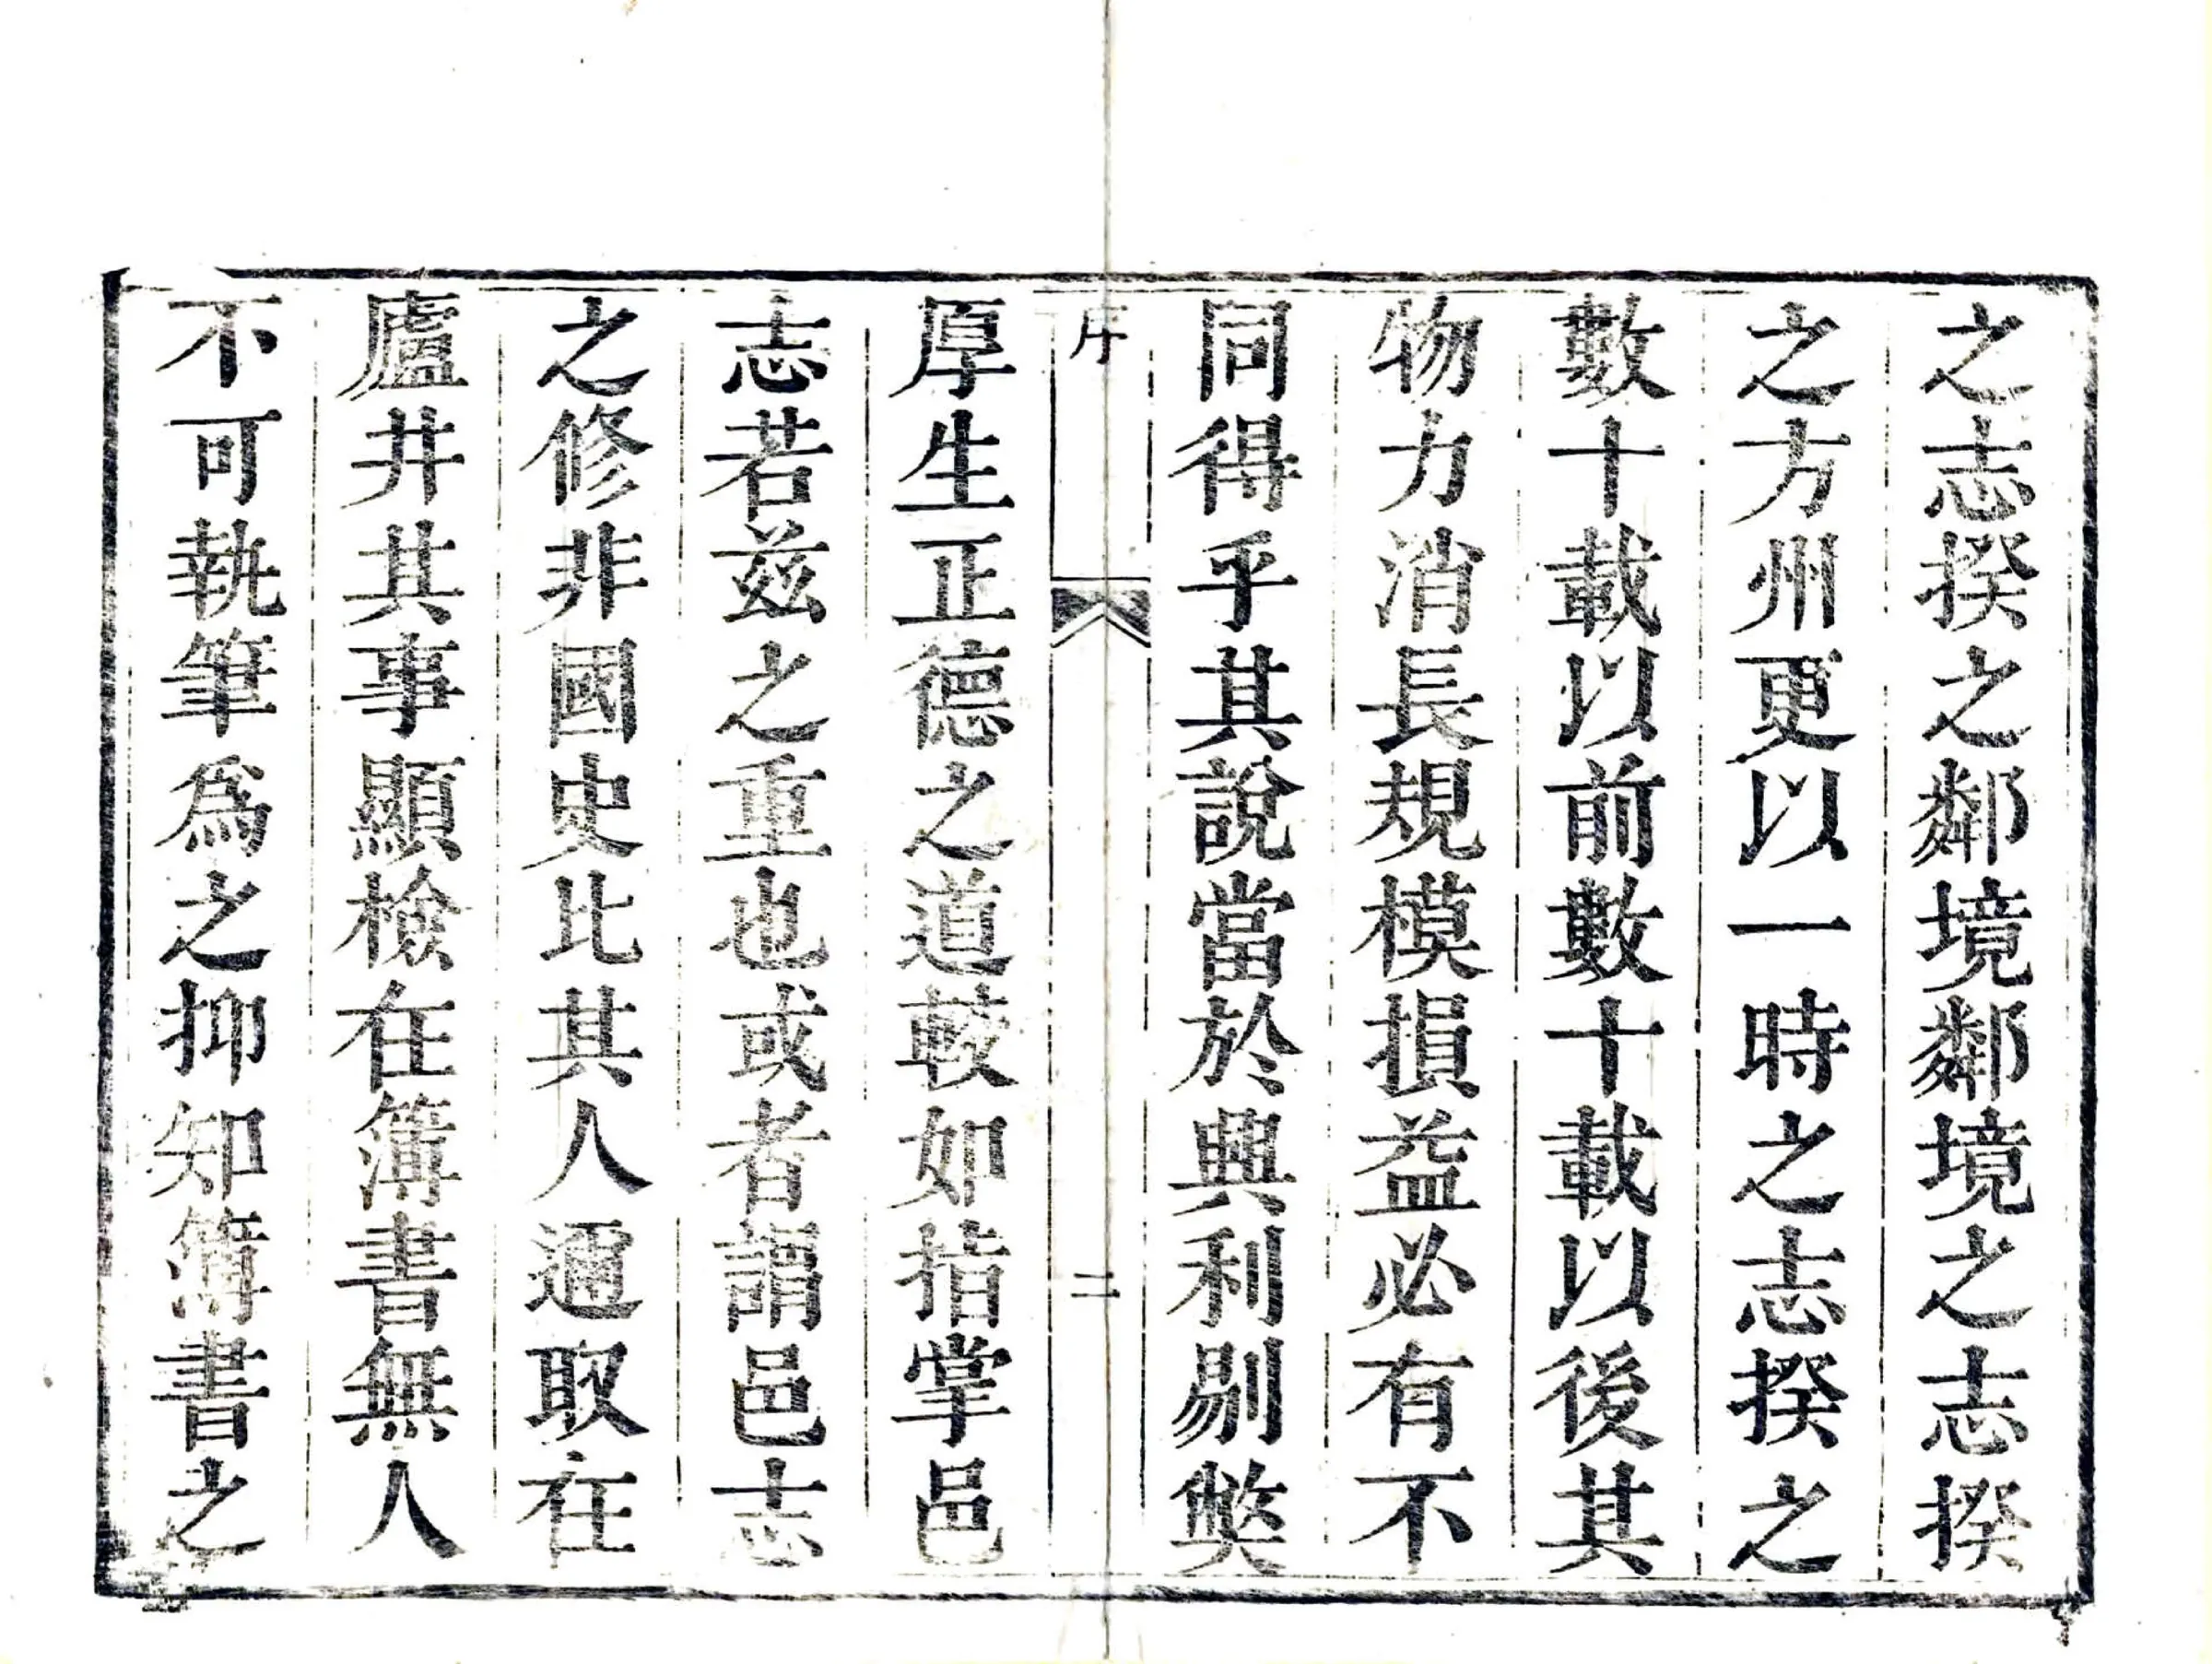 之志揆之鄰境鄰境之志揆
之方州更以一時之志揆之
數十載以前數十載以後其
物力消長規模損益必有不
同得乎其說當於興利剔弊
序
二
厚生正德之道較如指掌邑
志若兹之重也或者謂邑志
之修非國史比其人邇取在
廬井其事顯檢在簿書無人
不可執筆爲之抑知簿書之